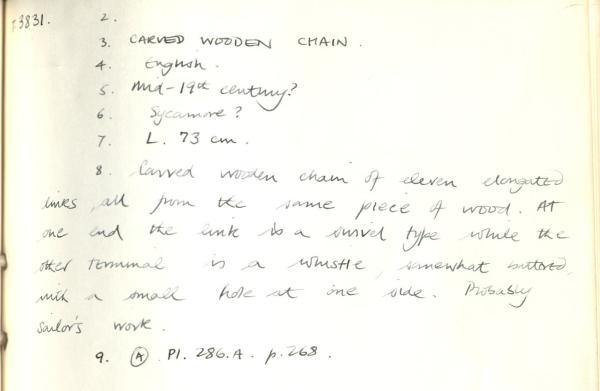 T3831. 2.
3. CARVED WOODEN CHAIN.
4. English.
5. Mid-19th century?
6. Sycamore?
7. L. 73 cm.
8. Carved wooden chain of eleven elongated
links, all from the same piece of wood. At
one end the link is a swivel type while the
other terminal is a whistle, somewhat battered,
with a small hole at one side. Probably
sailor's work.
9. A Pl. 286.A. p.268.